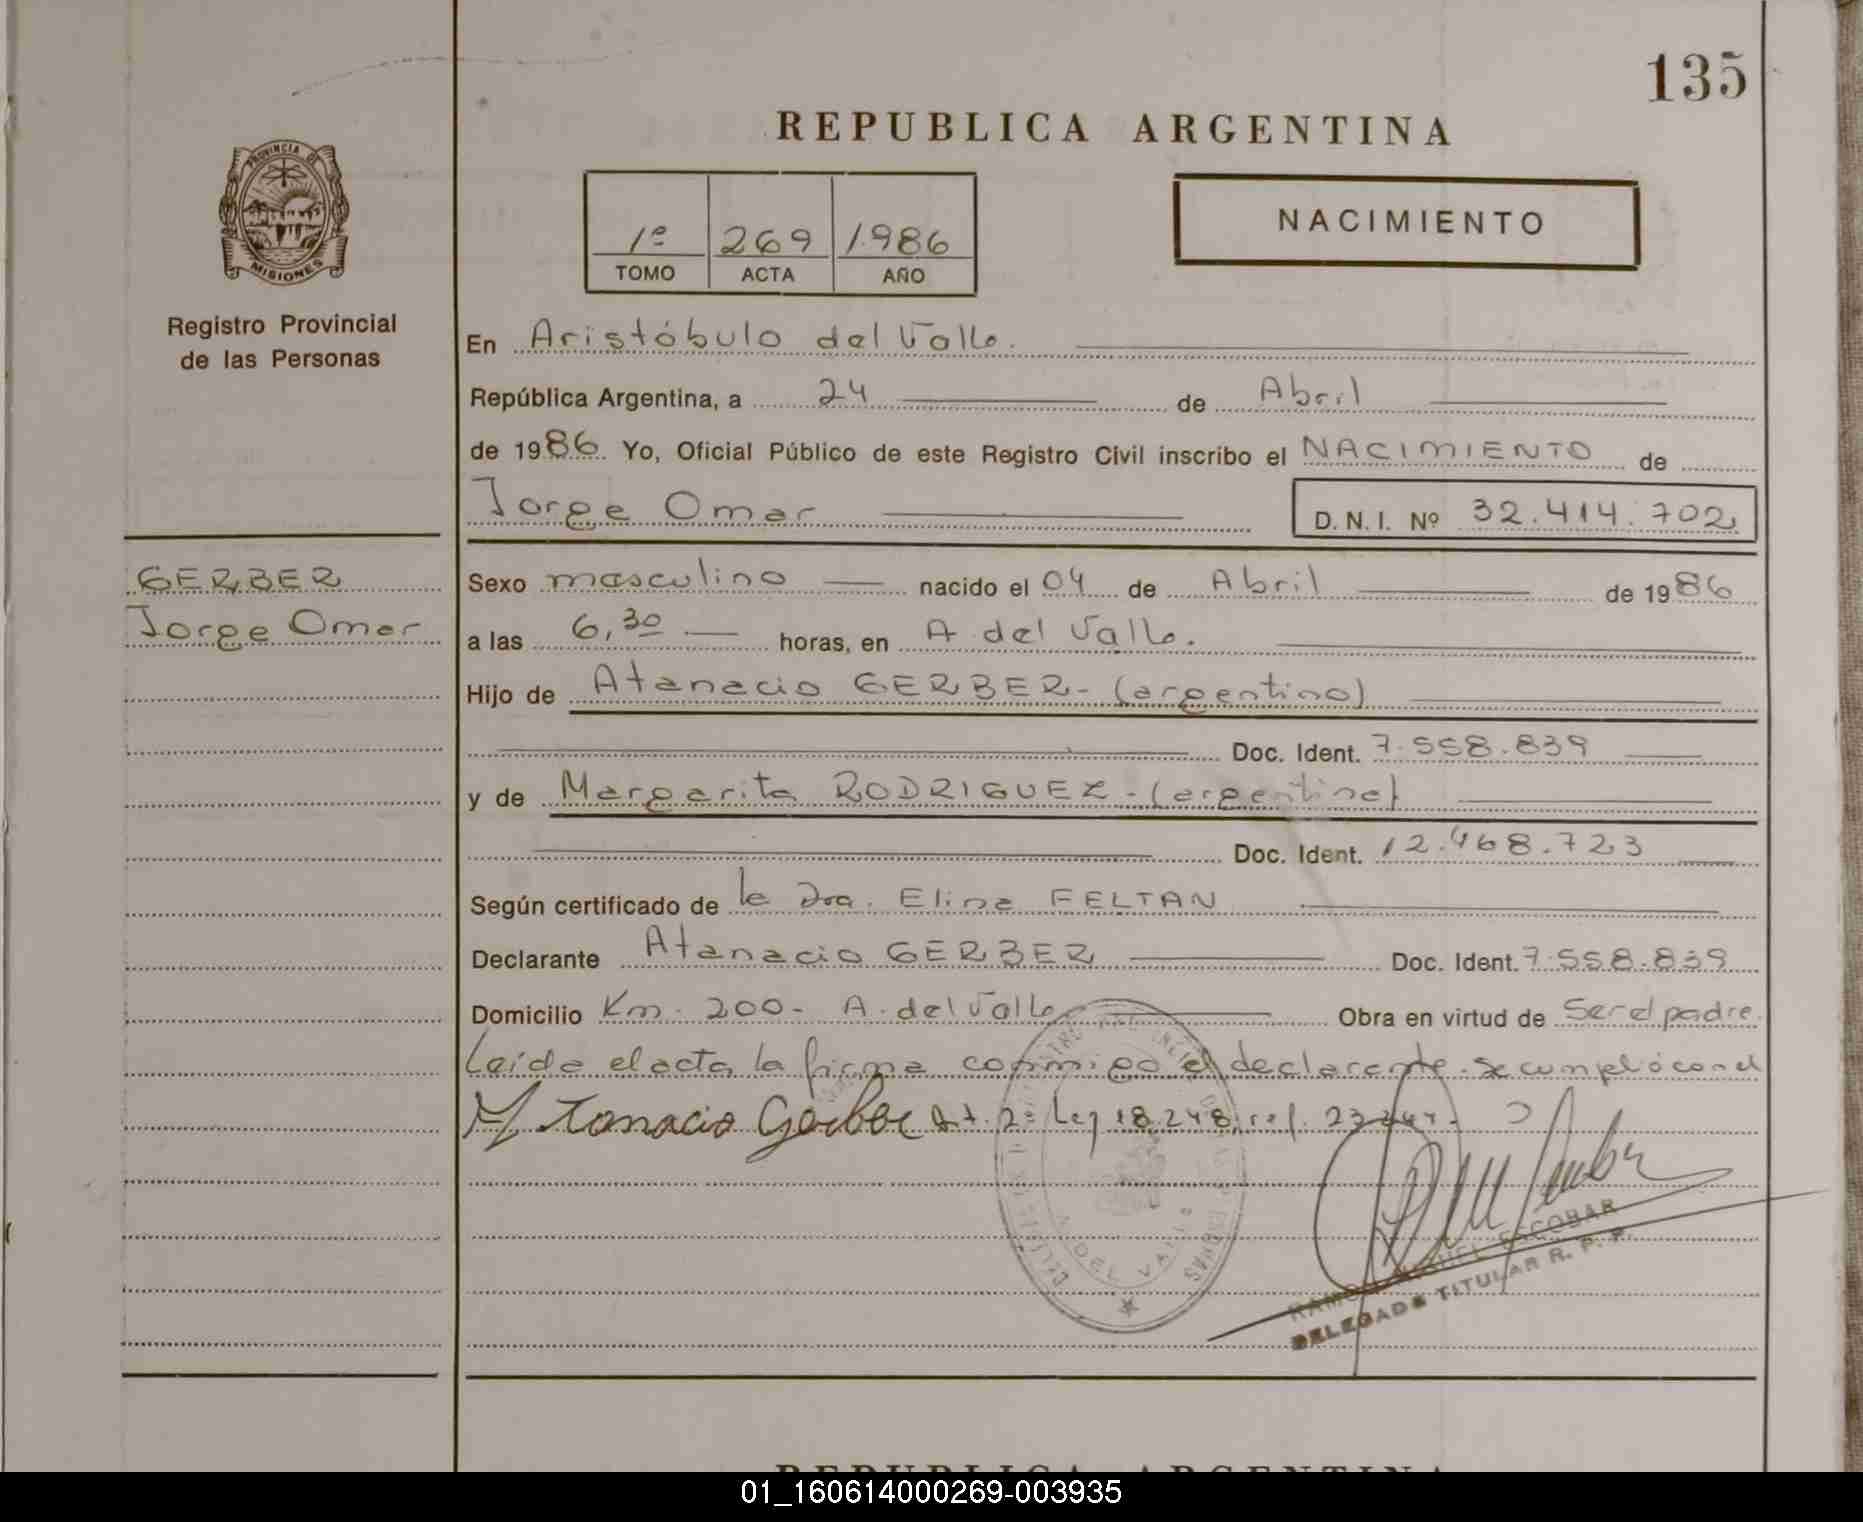 135
REPUBLICA ARGENTINA
PROVINCIA DE
MISIONES
Registro Provincial
de las Personas
1º 269 1986
TOMO ACTA AÑO
NACIMIENTO
En Aristóbulo del Valle.
República Argentina, a 24 de Abril
de 1986. Yo, Oficial Público de este Registro Civil inscribo el NACIMIENTO de
Jorge Omar D. N. I. Nº 32.414.702
GERBER
Jorge Omar
Sexo masculino nacido el 04 de Abril de 1986
a las 6,30 horas, en A. del Valle.
Hijo de Atanacio GERBER- (argentino)
Doc. Ident. 7.558.839
y de Margarita RODRIGUEZ - (argentina)
Doc. Ident. 12.468.723
Según certificado de la Dra. Elina FELTAN
Declarante Atanacio GERBER Doc. Ident. 7.558.839
Domicilio Km. 200- A. del Valle Obra en virtud de Ser el padre.
Leída el acta la firma conmigo el declarante. Se cumplió con el
Atanacio Gerber Art. 2º Ley 18.248, ref.
MIGUEL ESCOBAR
DELEGADO TITULAR R. P. P.
REPUBLICA ARGENTINA
01_160614000269-003935